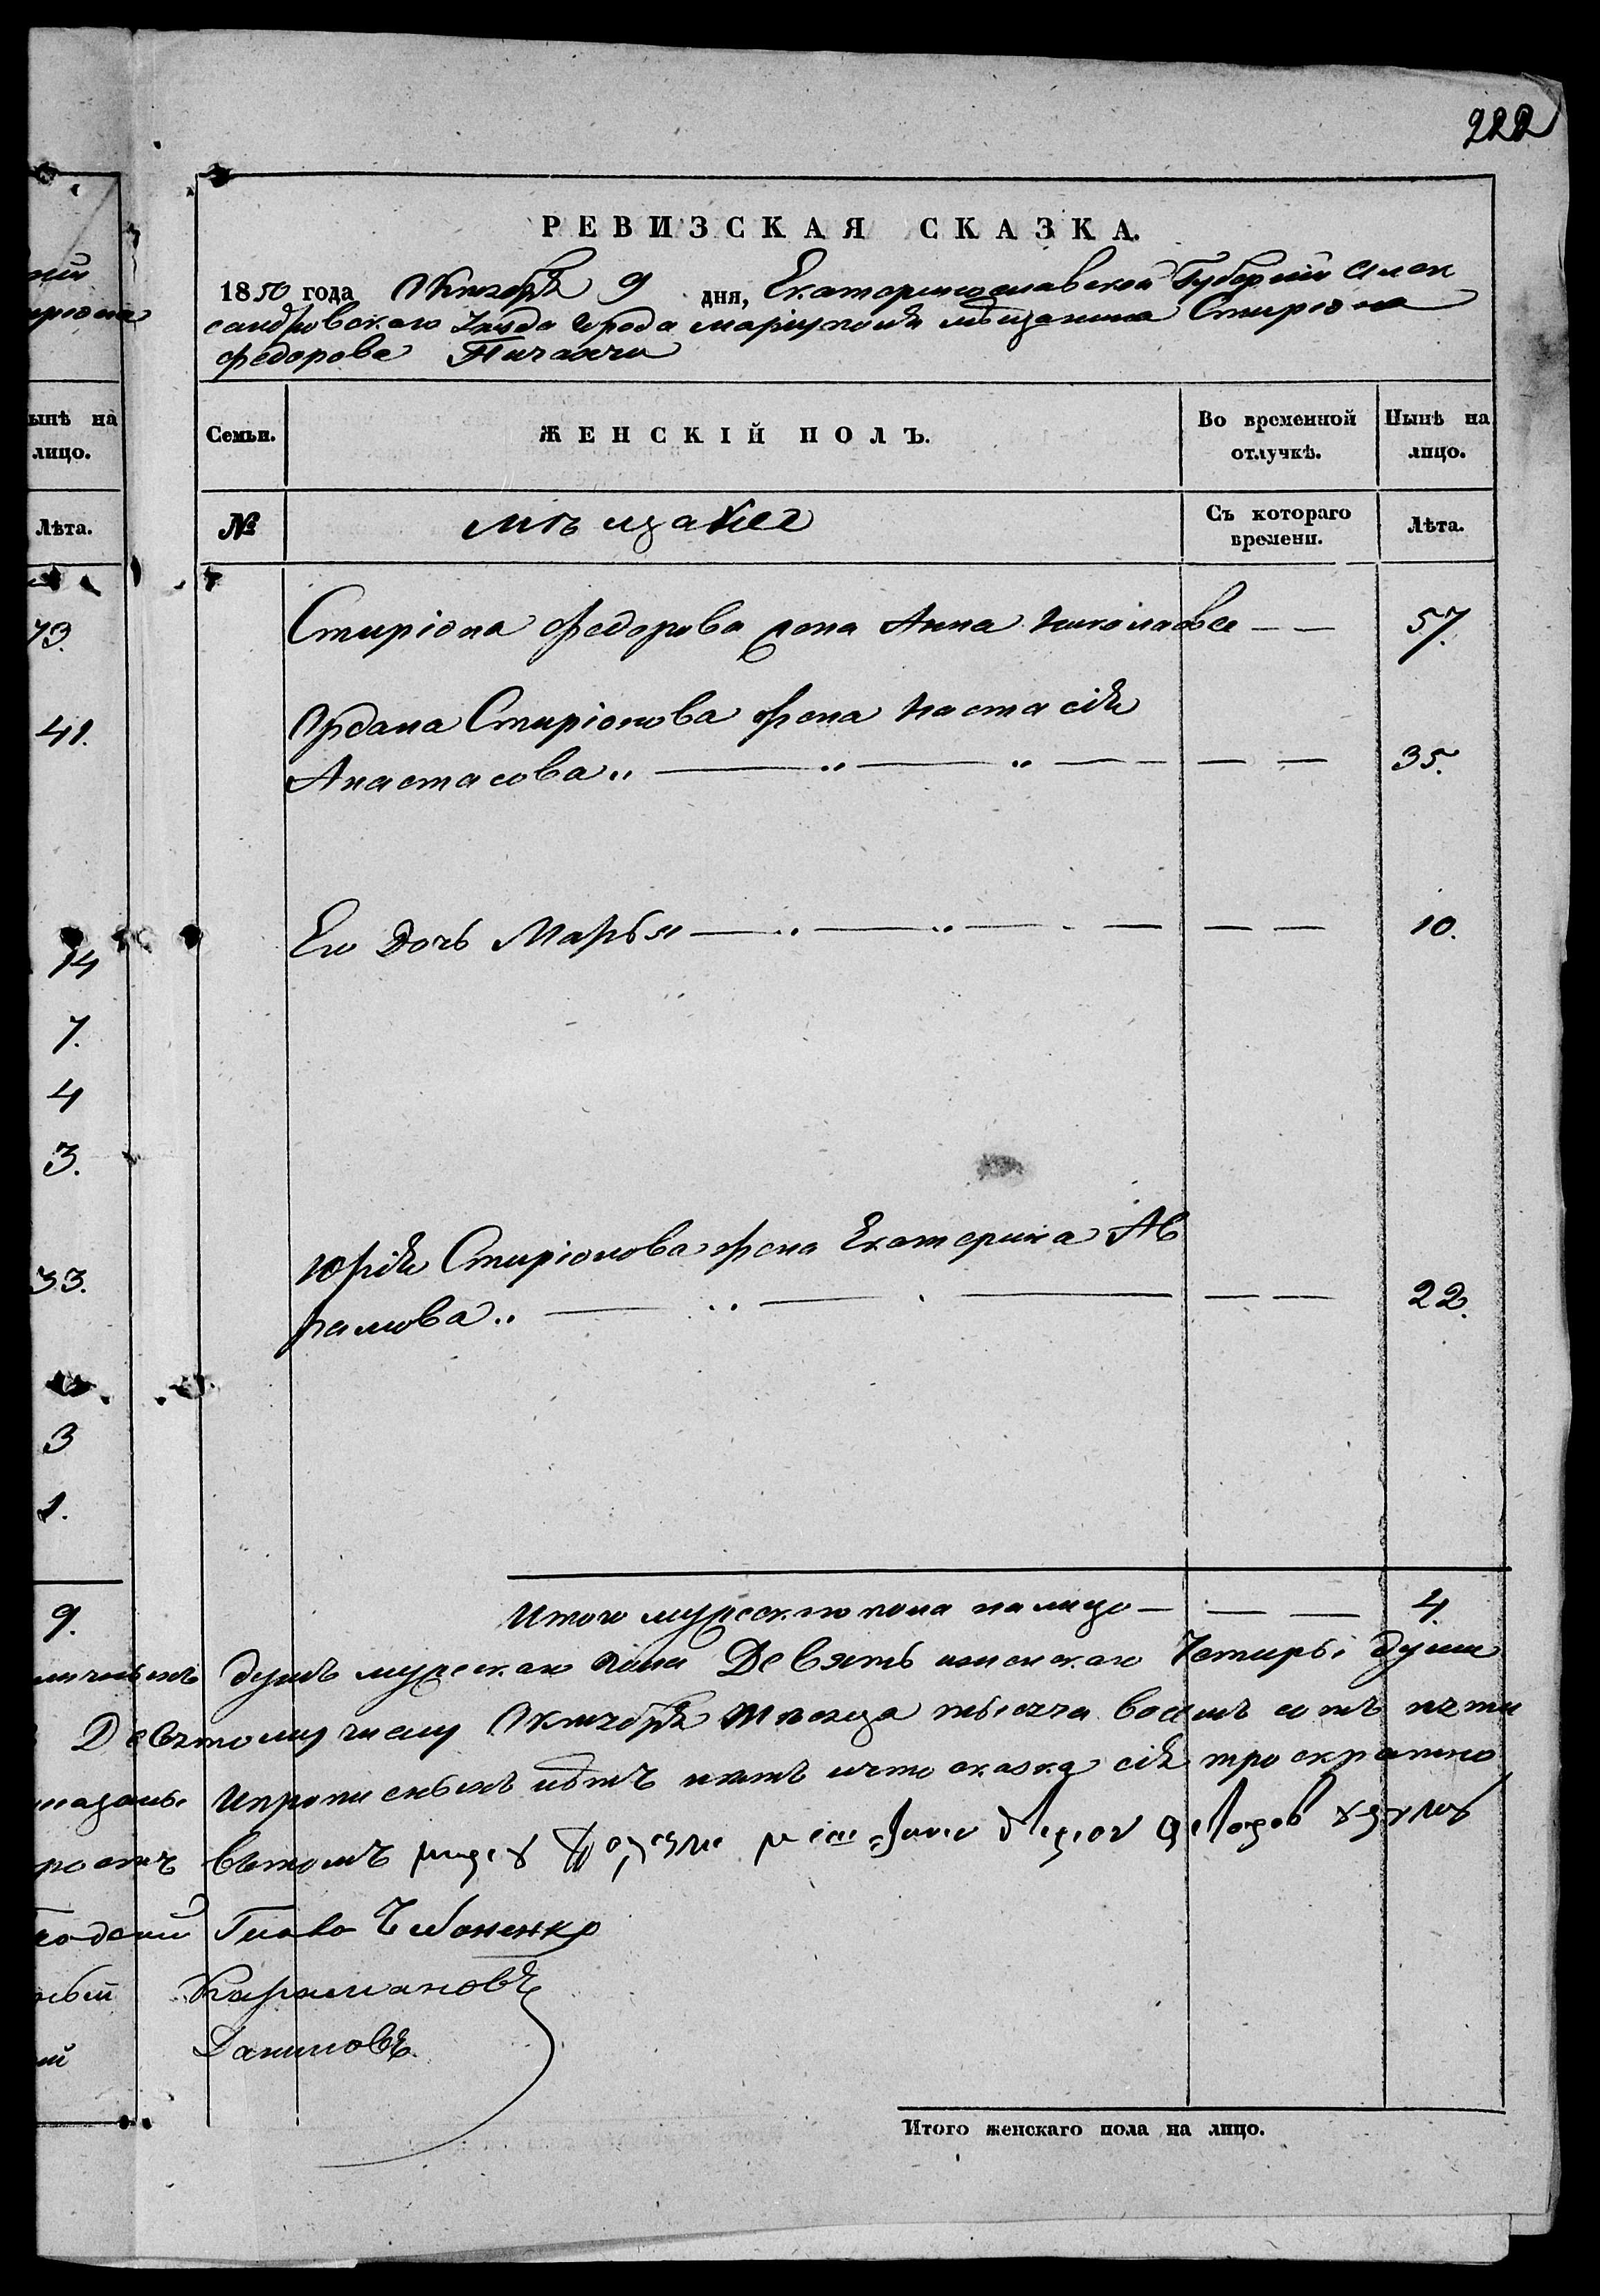 222
РЕВИЗСКАЯ СКАЗКА.
1850 года Октября 9 дня, Екатеринославской Губерніи Алек
сандровскаго Уезда города Маріуполя мѣщанина Спиріона
Федорова Пичахчи
Семьи. ЖЕНСКІЙ ПОЛЪ. Во временной отлучкѣ. Нынѣ на лицо.
№ мѣщане Съ котораго времени. Лѣта.
ынѣ на
лицо.
Лѣта.
Спиріона Федорова жена Анна Николаева — — 57.
73.
Юрдана Спиріонова жена Настасія
41.
Анастасова „ — „ — „ — — — — 35.
Его дочь Марья — „ — „ — - — — — 10.
14
7.
4
3.
Юрія Спиріонова жена Екатерина Ав
33.
рамова „ — „ — — — — 22.
3
1.
Итого мужескаго пола на лицо — — — 4.
9.
личныхъ душъ мужескаго пола Девять женскаго Четыры души
Девятому числу Октября Месяца тысяча восемъ сотъ пяти
прописныхъ нѣтъ что сказка сія троекратно
вътомъ
Глава Чебаненко
Карамановъ
Даниловъ
Итого женскаго пола на лицо.